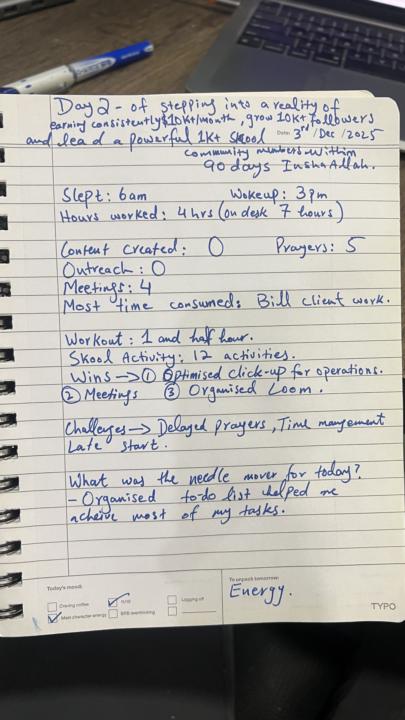 Day 2 - of stepping into a reality of
earning consistently $10K+/month, grow 10K+ followers
and lead a powerful 1K+ skool Date: 3rd/Dec/2025
community members within
90 days InshaAllah.
Slept: 6am Wokeup: 3pm
Hours worked: 4hrs (on desk 7 hours)
Content created: 0 Prayers: 5
Outreach: 0
Meetings: 4
Most time consumed: Bill client work.
Workout: 1 and half hour.
Skool Activity: 12 activities.
Wins → ① Optimised click-up for operations.
② Meetings ③ Organised Loom.
Challenges → Delayed prayers, Time mangement
Late start.
What was the needle mover for today?
- Organised to-do list helped me
acheive most of my tasks.
Today's mood:
Craving coffee Logging off
Main character energy BRB overthinking
To unpack tomorrow:
Energy.
TYPO